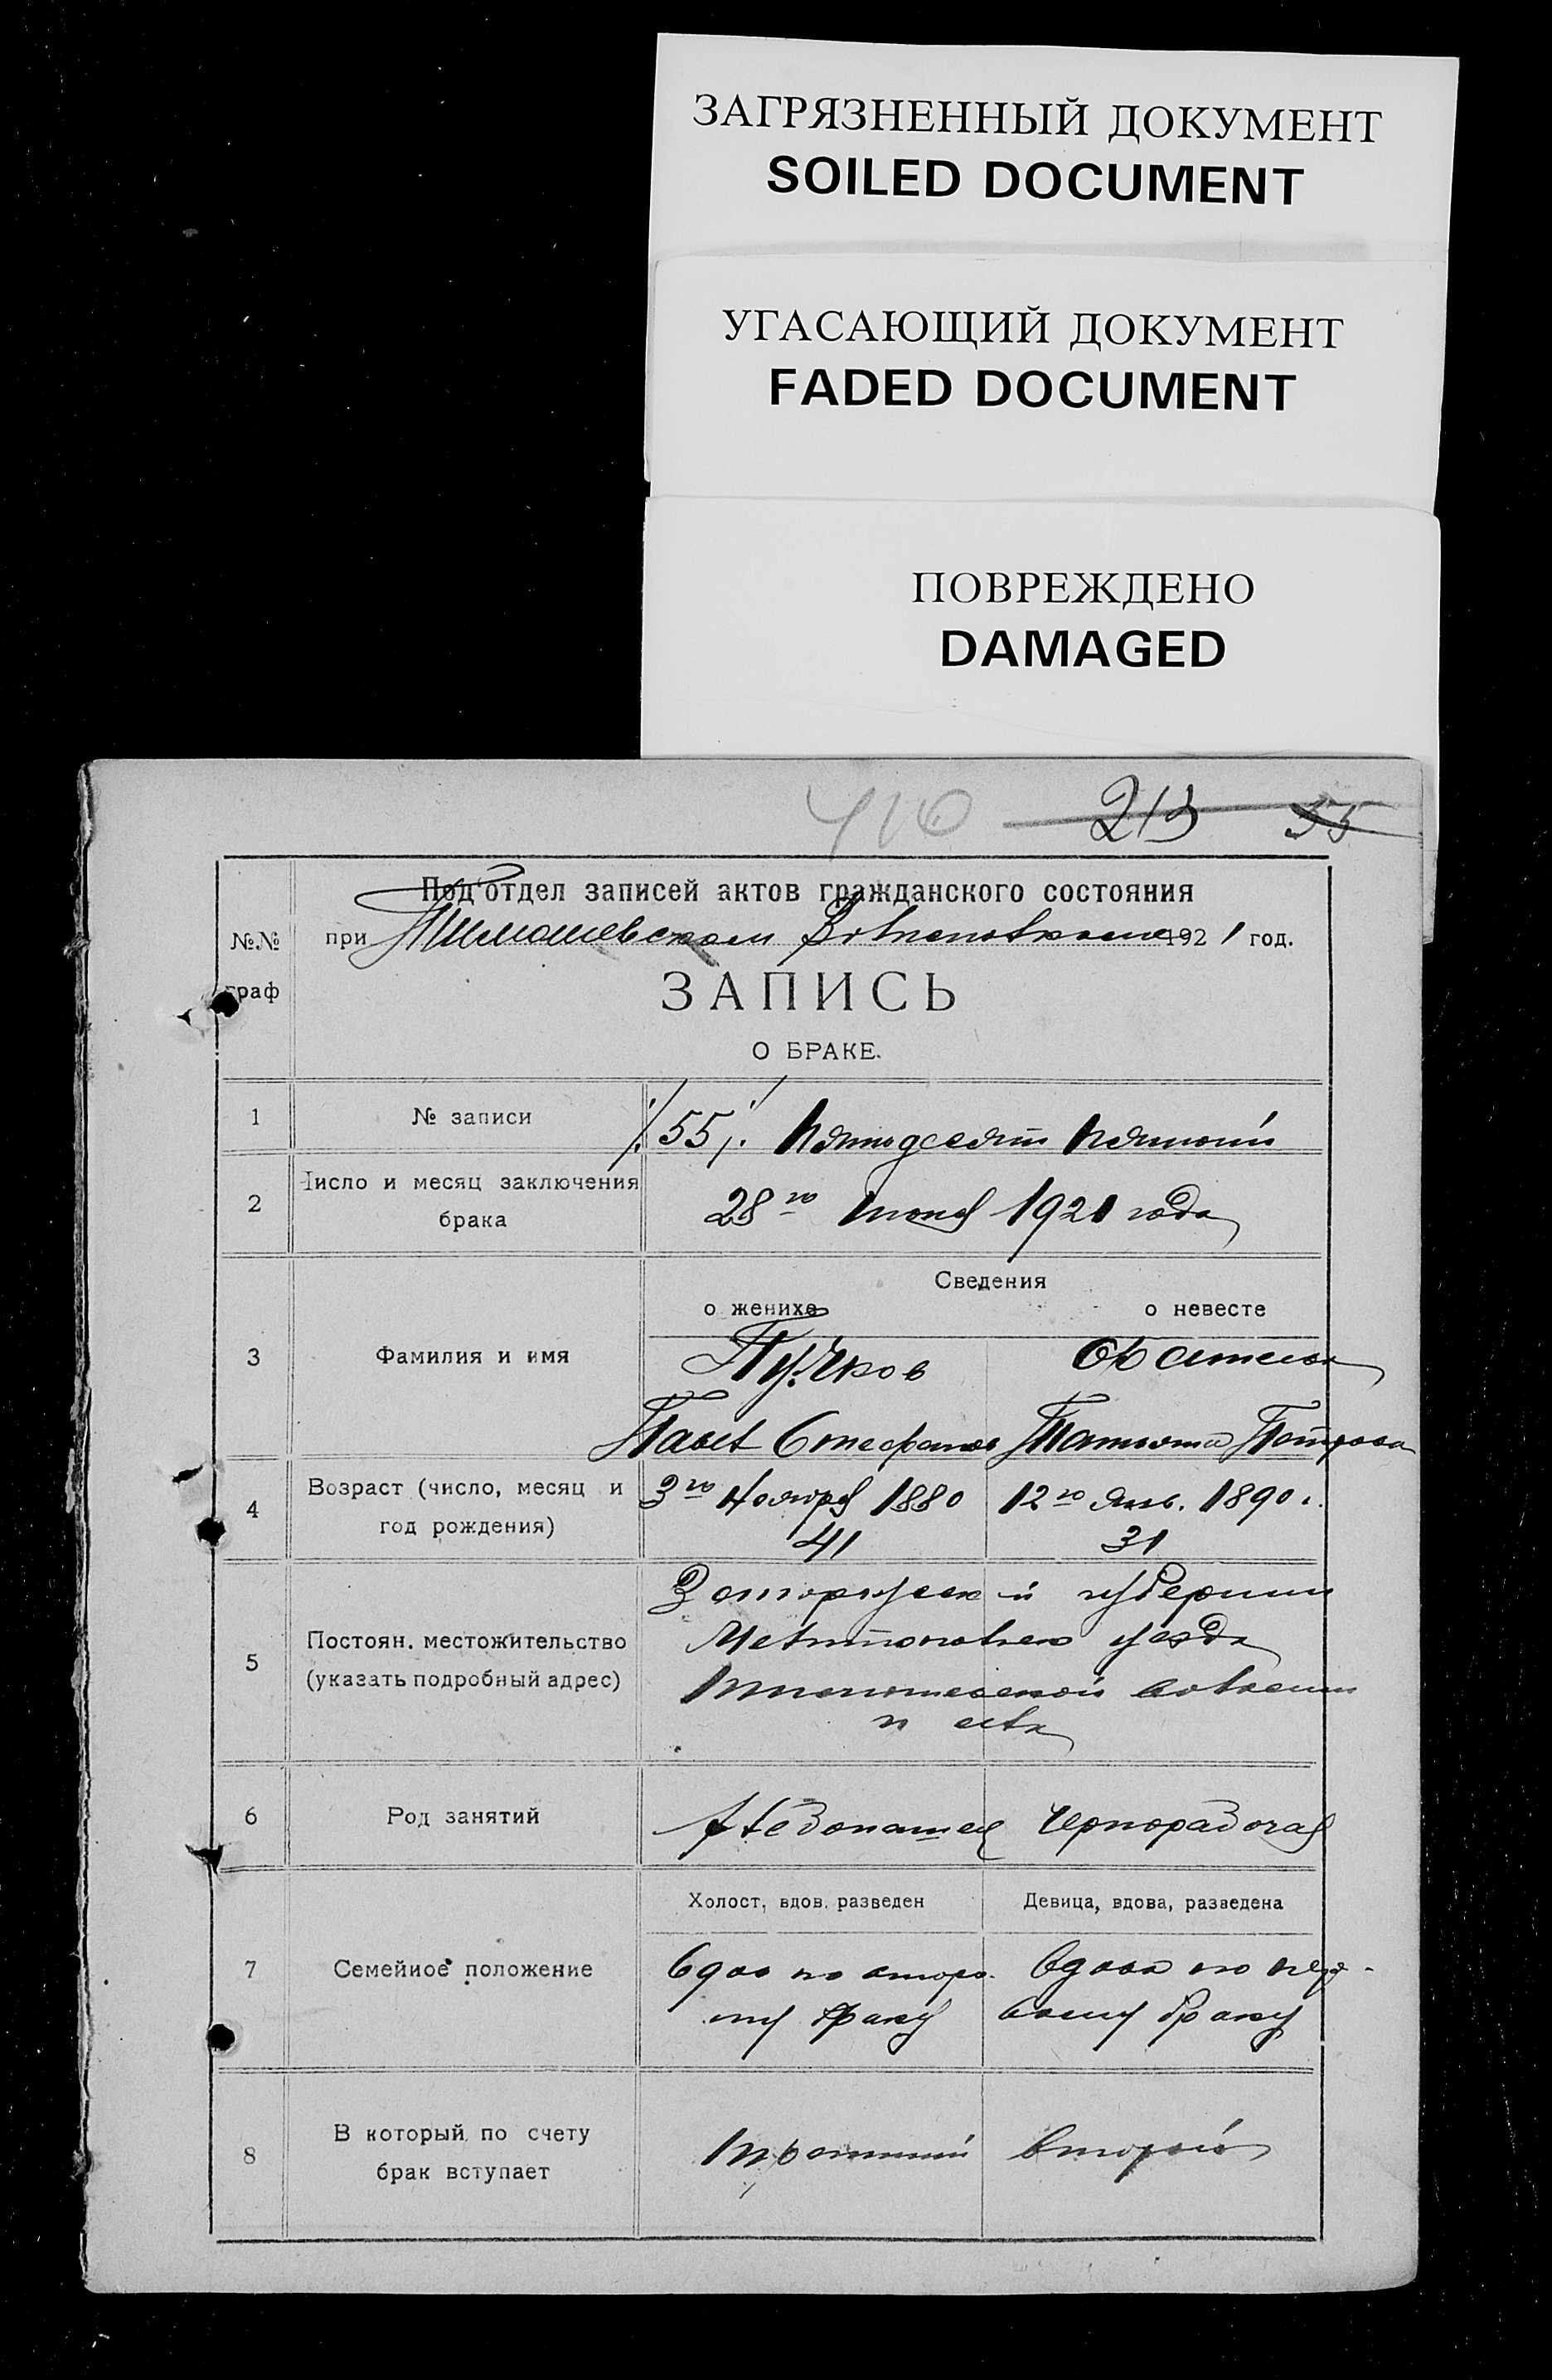 ЗАГРЯЗНЕННЫЙ ДОКУМЕНТ
SOILED DOCUMENT
УГАСАЮЩИЙ ДОКУМЕНТ
FADED DOCUMENT
ПОВРЕЖДЕНО
DAMAGED
410 213 55
Под'отдел записей актов гражданского состояния
при Тимошевском Волисполкоме 1921 год.
№№
граф
ЗАПИСЬ
О БРАКЕ.
1 № записи ./55/. Пятьдесят пятый
2 Число и месяц заключения
брака
28го Июня 1921 года
Сведения
о женихе о невесте
3 Фамилия и имя
Пучков
Павел Стефанов Татьяна Петрова
4 Возраст (число, месяц и
год рождения)
3го Ноября 1880 12го Янв. 1890 г.
41 31
5 Постоян. местожительство
(указать подробный адрес)
Запорожской губернии
Мелитопольского уезда
Тимошевской волости
и села
6 Род занятий
Хлебопашец Чернорабочая
Холост, вдов, разведен Девица, вдова, разведена
7 Семейное положение
Вдов по второ- Вдова по пер-
му браку вому браку
8 В который по счету
брак вступает
Третий Второй